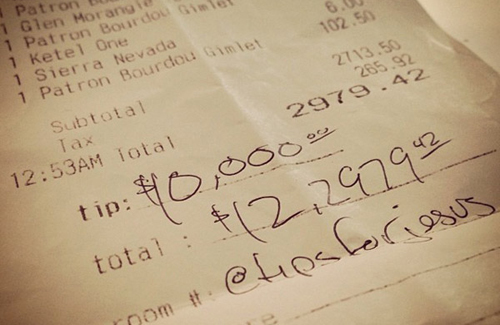 1 Patron
1 Glen Morangie
1 Patron Bourdou Gimlet
1 Ketel One
1 Sierra Nevada 6.00
1 Patron Bourdou Gimlet 102.50
Subtotal 2713.50
Tax 265.92
12:53AM Total 2979.42
tip: $10,000.00
total : $12,2979.42
room #: @tipsforjesus